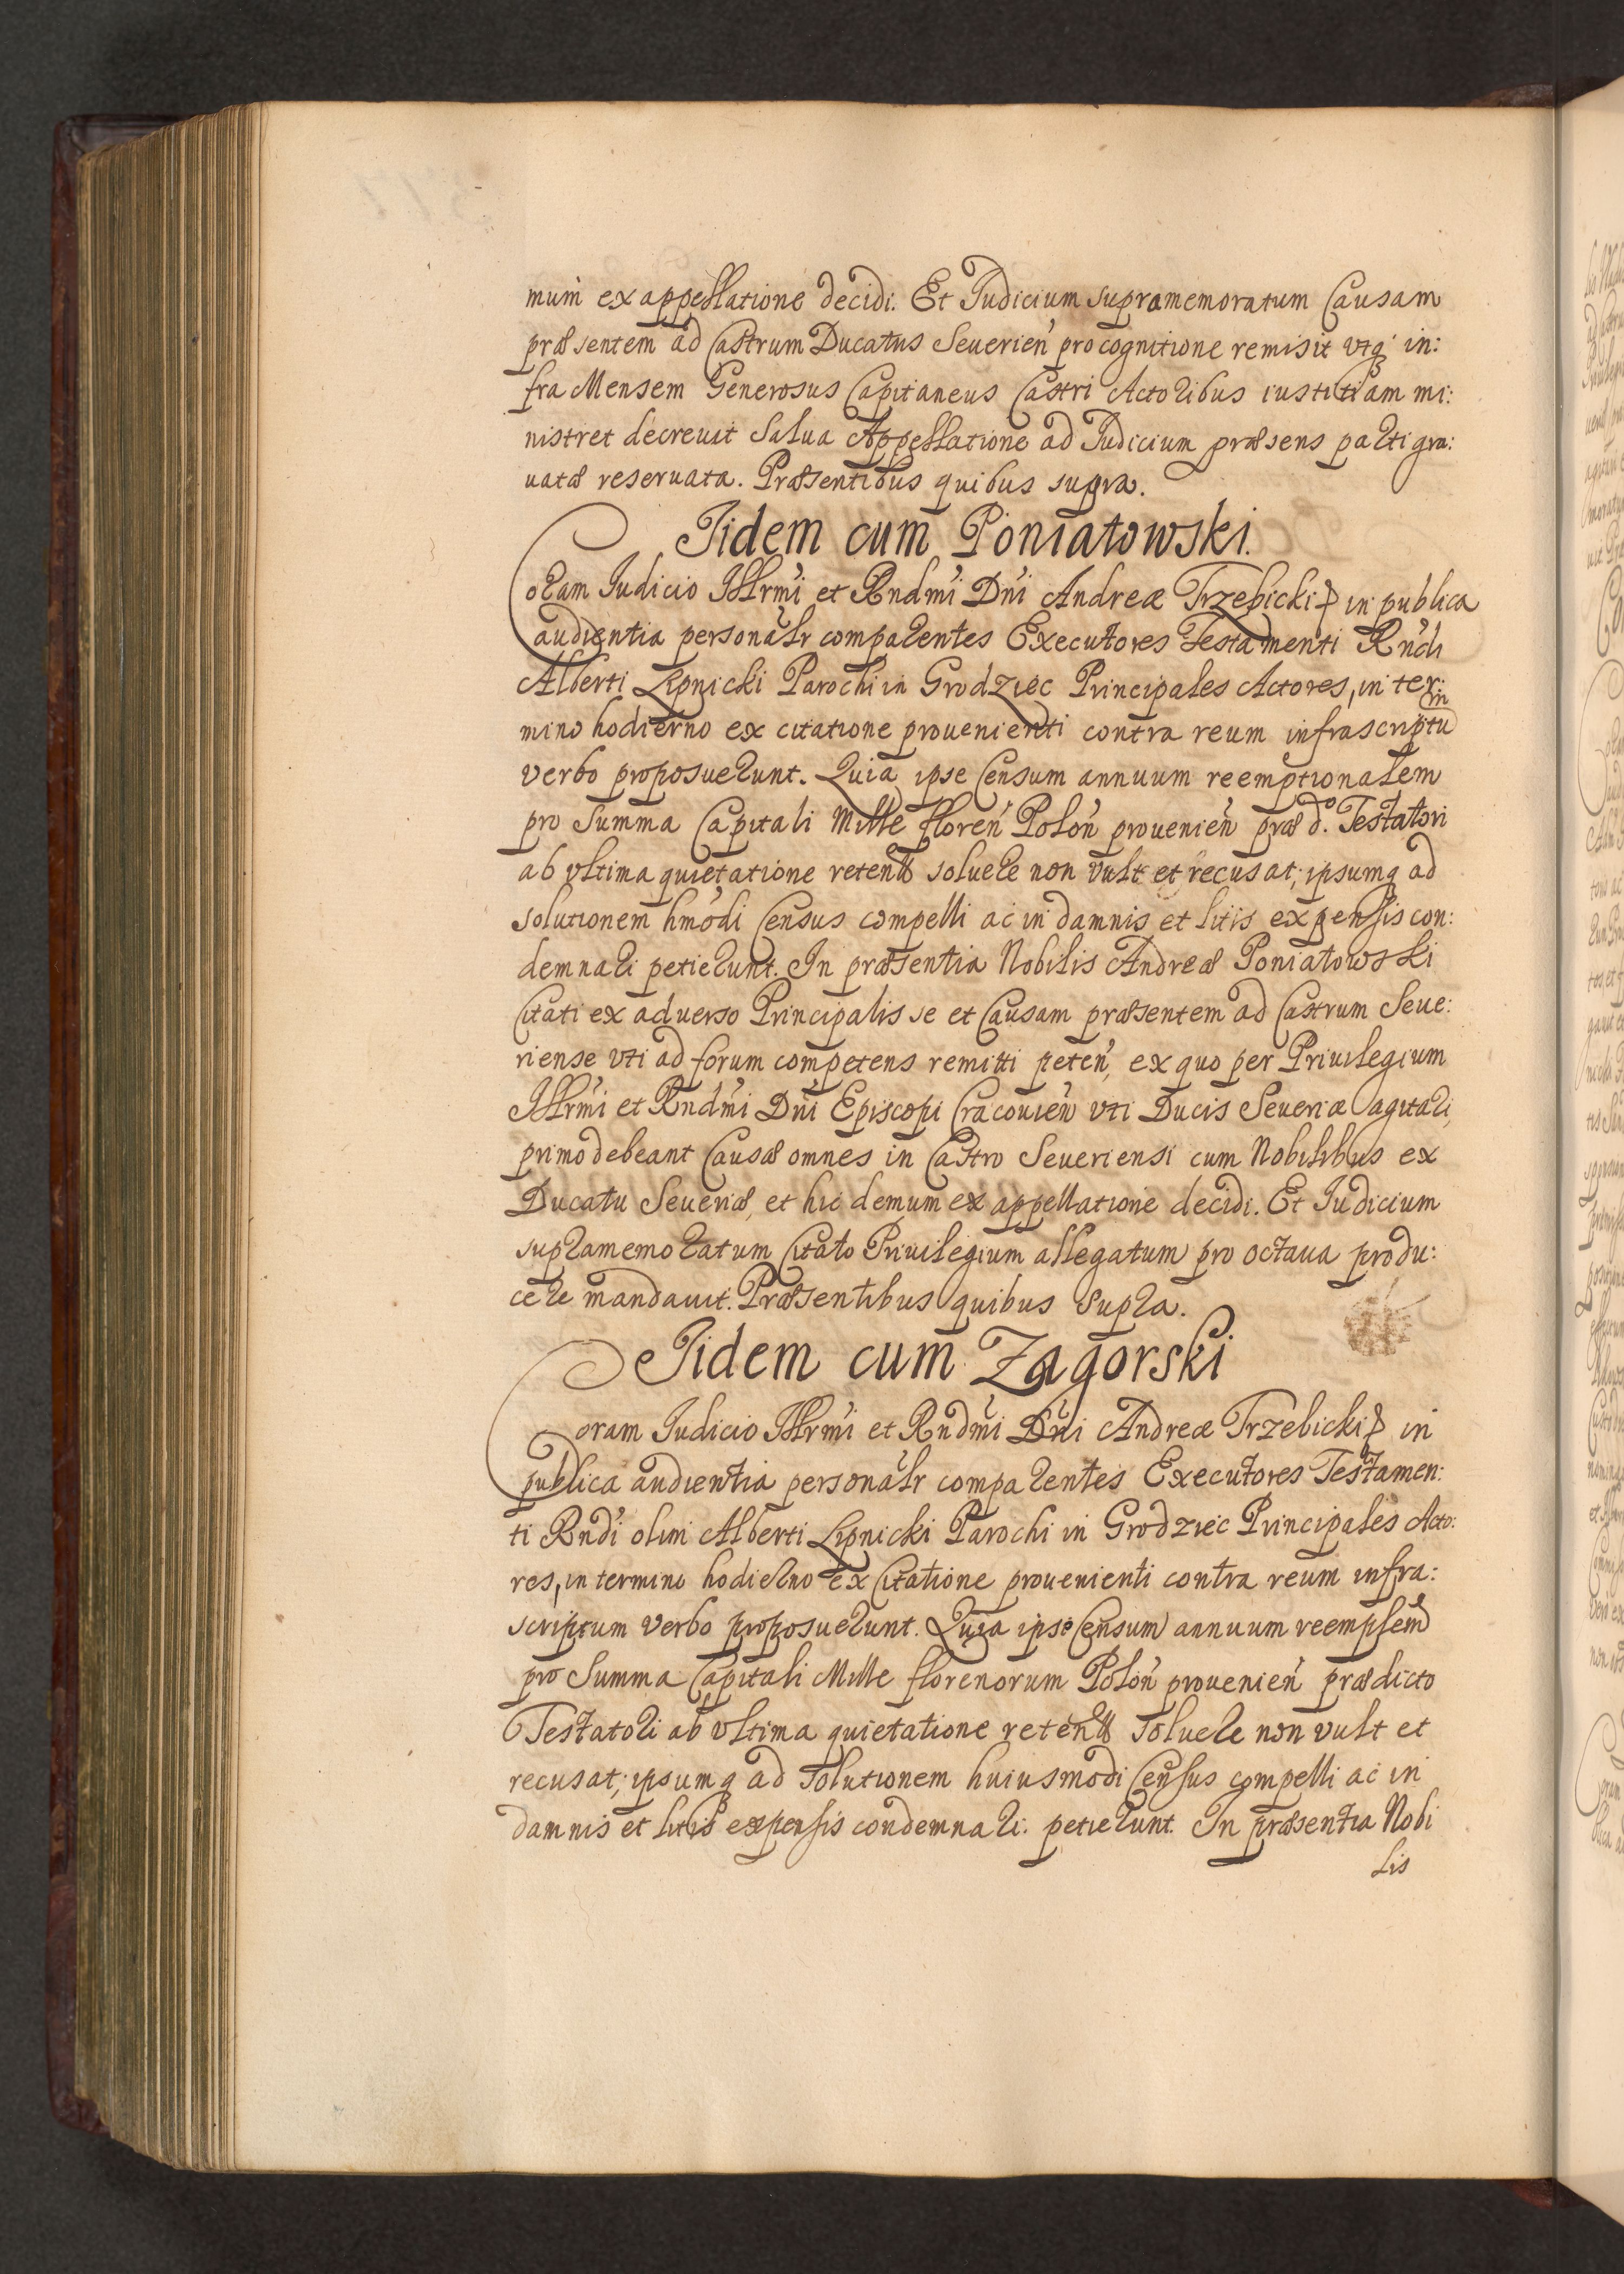 mum ex appellatione decidi. Et Iudicium supramemoratum Causam
præsentem ad Castrum Ducatus Seuerień pro cognitione remisit vtq in:
fra Mensem Generosus Capitaneus Castri Actoribus iustitiam mi:
nistret decreuit Salua Appellatione ad Iudicium præsens parti gra:
uatæ reseruata. Præsentibus quibus supra.
Iidem cum Poniatowski.
Coram Iudicio Illrmi et Rndmi Dni Andreæ Trzebicki in publica
audientia personalr comparentes Executores Testamenti Rndi
Alberti Lipnicki Parochi in Grodziec Principales Actores, in ter:
mino hodierno ex citatione prouenienti contra reum infrascriptu
m
verbo proposuerunt. Quia ipse Censum annuum reemptionalem
pro Summa Capitali Mille floreń Poloń prouenień præd.º Testatori
ab vltima quietatione retent soluere non vult et recusat; ipsumq ad
solutionem hmodi Census compelli ac in damnis et litis expensis con:
demnari petierunt. In præsentia Nobilis Andreæ Poniatowski
Citati ex aduerso Principalis se et Causam præsentem ad Castrum Seue:
riense vti ad forum competens remitti peteń, ex quo per Priuilegium
Illrmi et Rndmi Dni Episcopi Cracouień vti Ducis Seueriæ agitari,
primo debeant Causæ omnes in Castro Seueriensi cum Nobilibus ex
Ducatu Seueriæ, et hic demum ex appellatione decidi. Et Iudicium
supramemoratum Citato Priuilegium allegatum pro octaua produ:
cere mandauit. Præsentibus quibus supra.
Iidem cum Zagorski
Coram Iudicio Illrmi et Rndmi Dni Andreæ Trzebicki in
publica audientia personalr comparentes Executores Testamen:
ti Rndi olim Alberti Lipnicki Parochi in Grodziec Principales Acto:
res, in termino hodierno ex Citatione prouenienti contra reum infra:
scriptum verbo proposuerunt. Quia ipse Censum annuum reemplem
pro Summa Capitali Mille florenorum Poloń prouenień prædicto
Testatori ab vltima quietatione retent soluere non vult et
recusat; ipsumq ad Solutionem huiusmodi Census compelli ac in
damnis et litis expensis condemnari. petierunt. In præsentia Nobi
lis